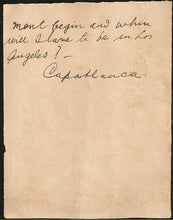 ment begin and when
will I have to be in Los
Angeles? —
Capablanca